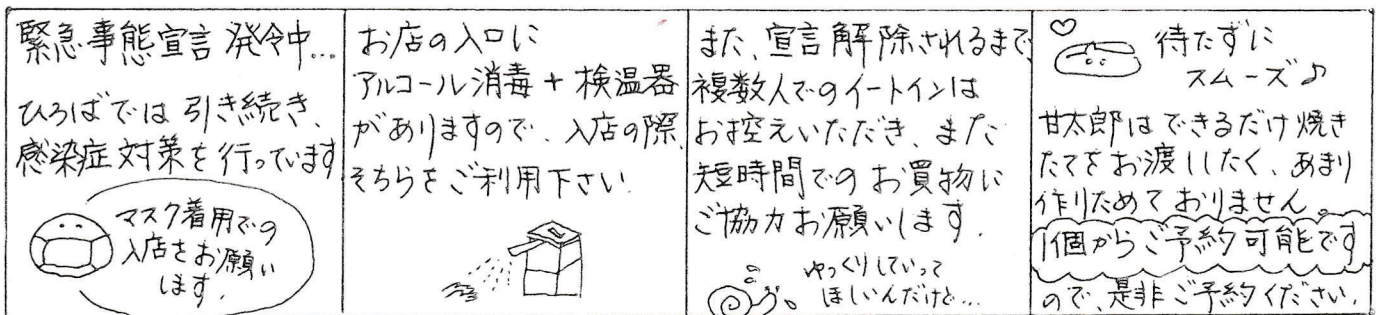 緊急事態宣言 発令中…
ひろばでは 引き続き、
感染症対策を行っています
マスク着用での
入店をお願い
します。
お店の入口に
アルコール消毒＋検温器
がありますので、入店の際、
そちらをご利用下さい。
また、宣言解除されるまで
複数人でのイートインは
お控えいただき、また
短時間でのお買物に
ご協力お願いします。
ゆっくりしていって
ほしいんだけど…
待たずに
スムーズ♪
甘太郎はできるだけ焼き
たてをお渡ししたく、あまり
作りためておりません。
1個からご予約可能です
ので、是非ご予約ください。